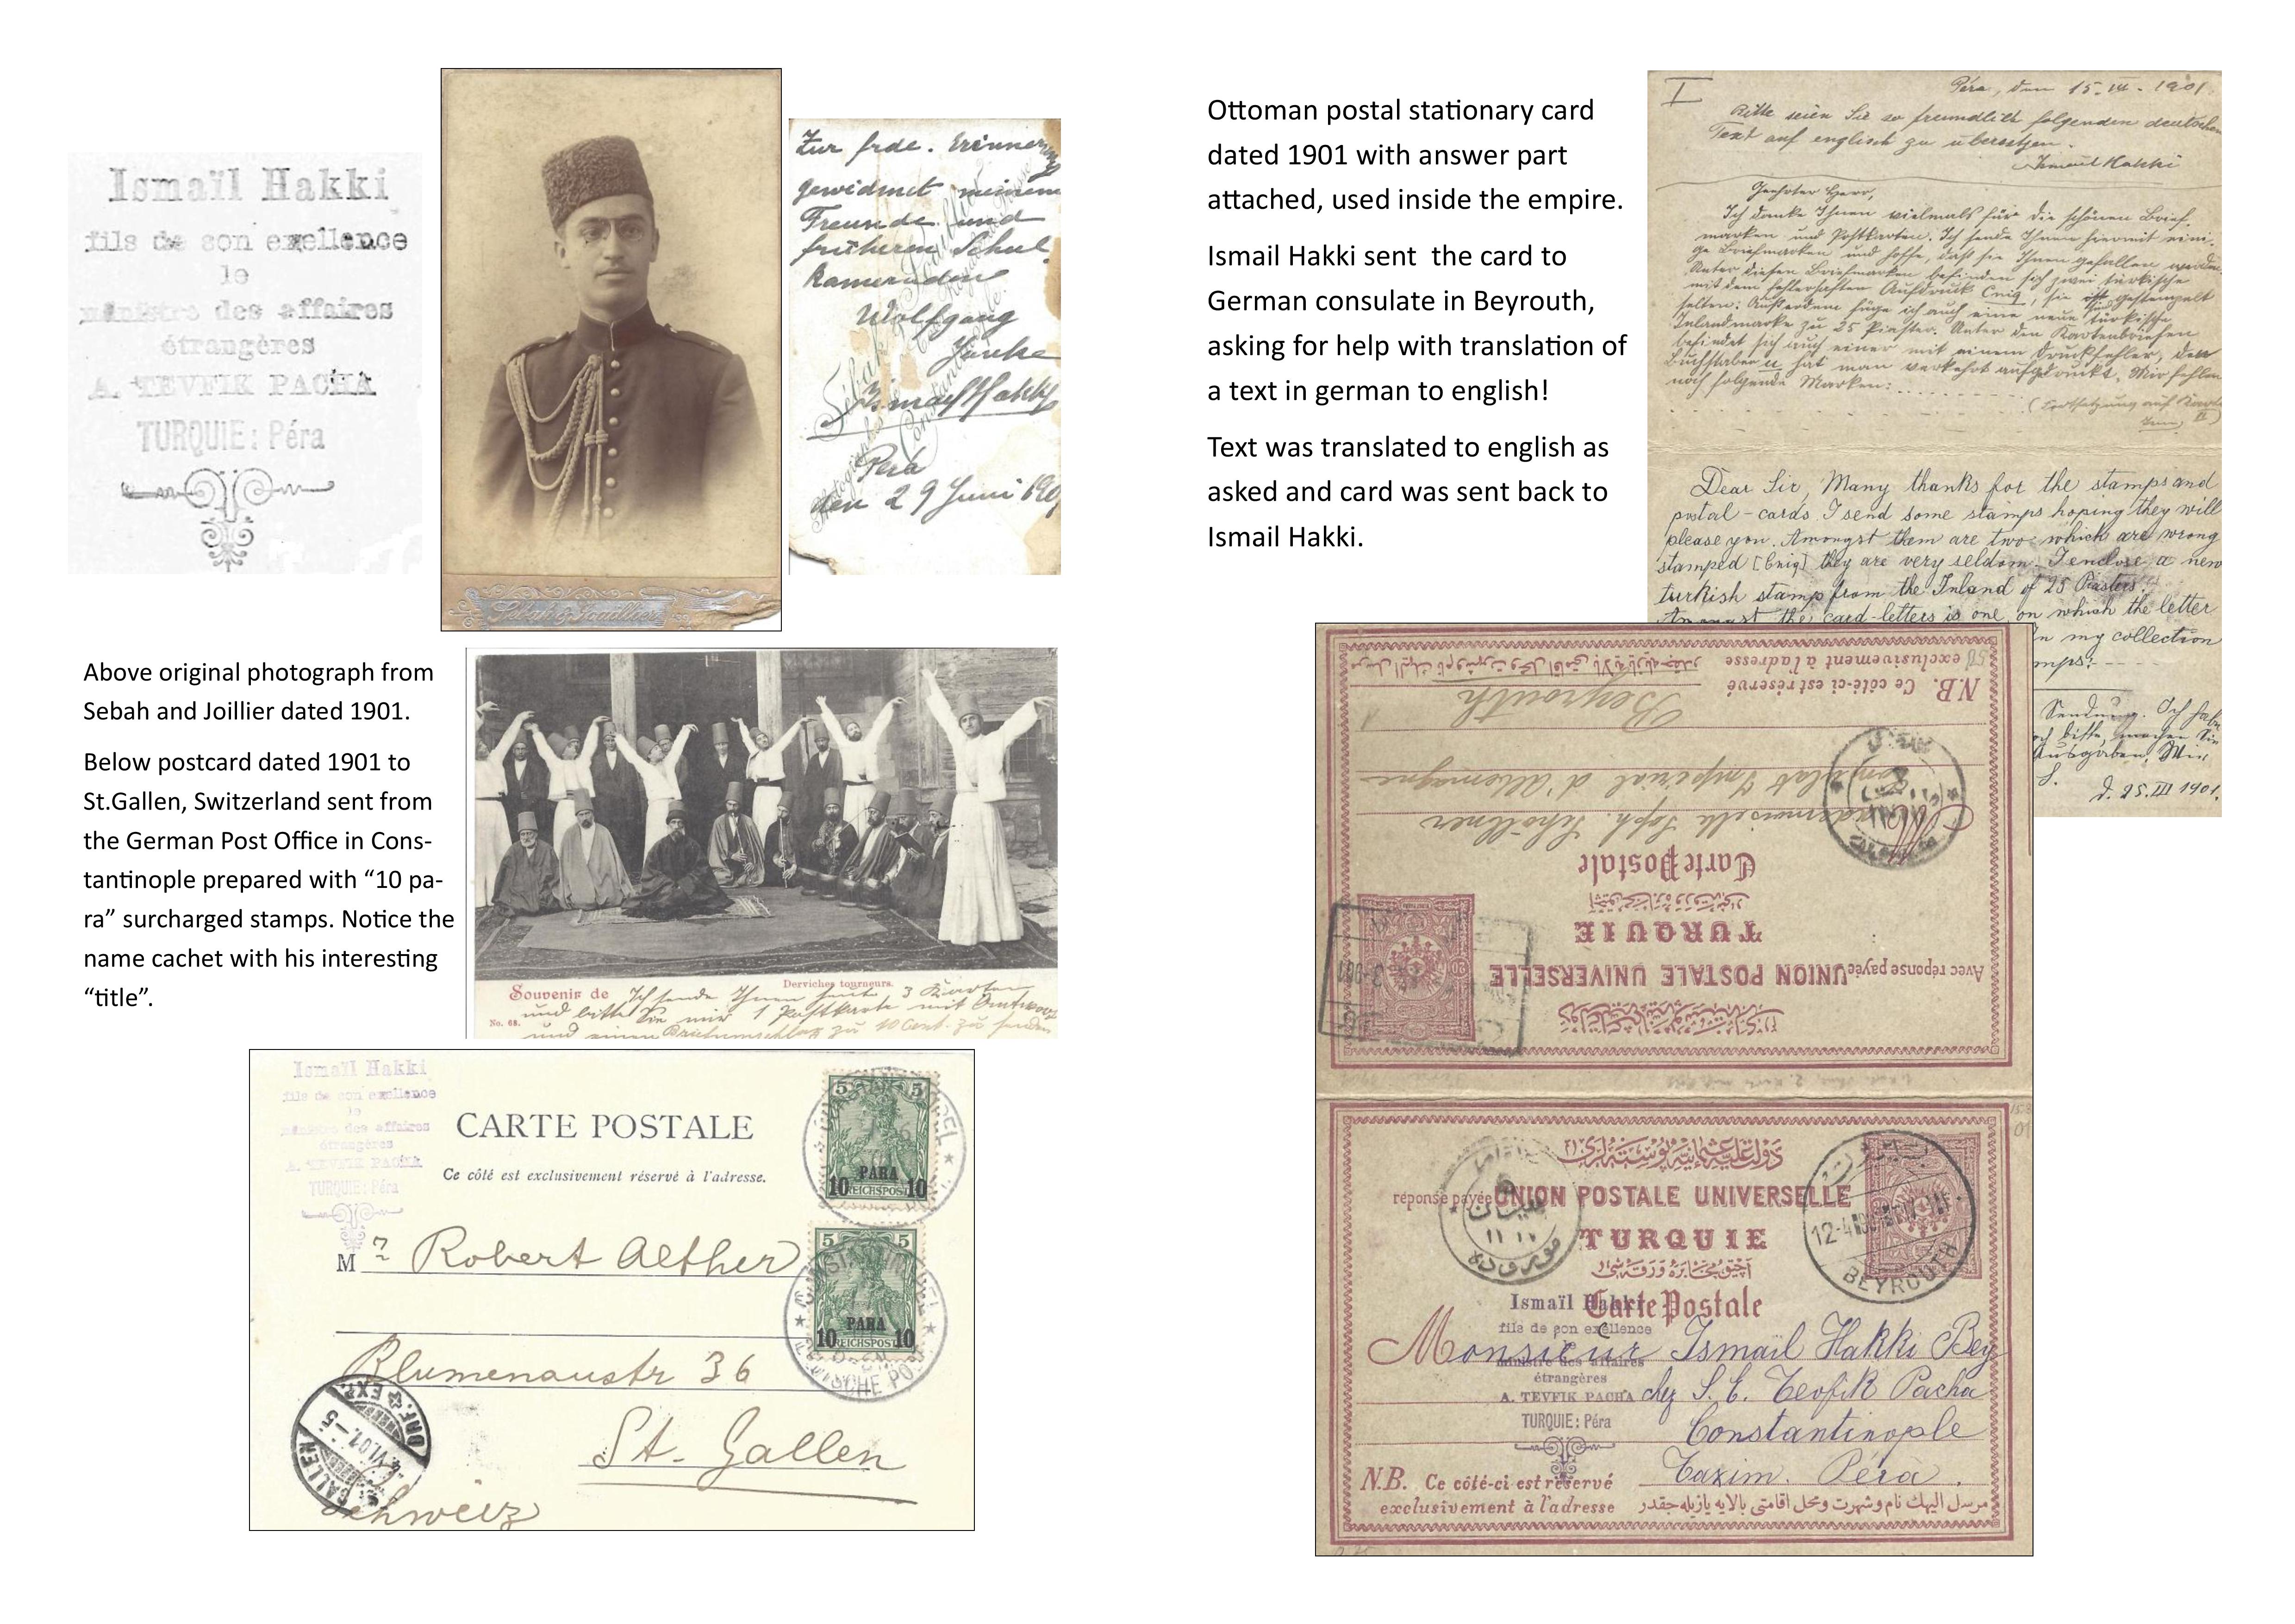 Ismaïl Hakki
fils de son exellence
le
ministre des affaires
étrangères
A. TEVFIK PACHA
TURQUIE: Péra
Sebah & Joaillier
Zur frdl. Erinnerung
gewidmet meinem
Freunde und
früheren Schul-
kameraden
Wolfgang
Ismail Hakki
Pera
den 29 Juni 190
Above original photograph from
Sebah and Joillier dated 1901.
Below postcard dated 1901 to
St.Gallen, Switzerland sent from
the German Post Office in Cons-
tantinople prepared with “10 pa-
ra” surcharged stamps. Notice the
name cachet with his interesting
“title”.
Derviches tourneurs.
Souvenir de Ich sende Ihnen heute 3 Karten
und bitte Sie mir 1 Postkarte mit Antwort
No. 68. und einen Briefumschlag zu 10 Cent. zu senden
Ismaïl Hakki
fils de son exellence
le
ministre des affaires
étrangères
A. TEVFIK PACHA
TURQUIE: Péra
CARTE POSTALE
Ce côté est exclusivement réservé à l'adresse.
5 5
PARA
10 REICHSPOST 10
5 5
PARA
10 REICHSPOST 10
DEUTSCHE POST
M r Robert Aelher
Blumenaustr 36
St. Gallen
Schweiz
Ottoman postal stationary card
dated 1901 with answer part
attached, used inside the empire.
Ismail Hakki sent the card to
German consulate in Beyrouth,
asking for help with translation of
a text in german to english!
Text was translated to english as
asked and card was sent back to
Ismail Hakki.
I
Péra, den 15. III. 1901.
Bitte seien Sie so freundlich folgenden deutschen
Text auf englisch zu übersetzen.
Ismail Hakki
Geehrter Herr,
Ich danke Ihnen vielmals für die schönen Brief-
marken und Postkarten. Ich sende Ihnen hiermit eini-
ge Briefmarken und hoffe, daß sie Ihnen gefallen werden.
Unter diesen Briefmarken befinden sich zwei türkische
mit dem fehlerhaften Aufdruck Cnig, sie sind gestempelt
selten. Außerdem füge ich auch eine neue türkische
Inlandmarke zu 25 Piaster. Unter den Kartenbriefen
befindet sich auch einer mit einem Druckfehler, den
Buchstaben u hat man verkehrt aufgedruckt. Mir fehlen
noch folgende Marken:
(Fortsetzung auf Karte
II)
Dear Sir, Many thanks for the stamps and
postal-cards I send some stamps hoping they will
please you. Amongst them are two which are wrong
stamped [Cnig] they are very seldom. I enclose a new
turkish stamp from the Inland of 25 Piasters.
Amongst the card-letters is one on which the letter
In my collection
Sendung. Ich habe
Ausgaben. Mir
d. 25. III 1901.
N.B. Ce côté-ci est réservé
exclusivement à l'adresse
Beyrouth
Consulat Impérial d'Allemagne
Mademoiselle Soph. Schöllner
Carte Postale
TURQUIE
Avec réponse payée UNION POSTALE UNIVERSELLE
réponse payée UNION POSTALE UNIVERSELLE
TURQUIE
Carte Postale
BEYROUTH
Ismaïl Hakki
fils de son exellence
ministre des affaires
étrangères
A. TEVFIK PACHA
TURQUIE: Péra
Monsieur Ismaïl Hakki Bey
chez S. E. Teofik Pacha
Constantinople
Taxim. Péra.
N.B. Ce côté-ci est réservé
exclusivement à l'adresse
مرسل اليهك نام وشهرت ومحل اقامتى بالايه يازيله جقدر